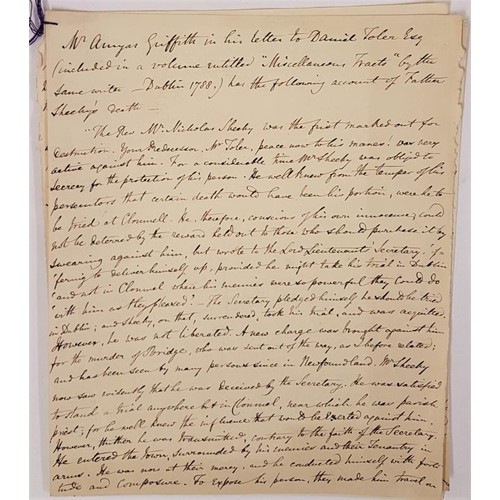 Mr Amyas Griffith in his letter to Daniel Toler Esq
(included in a volume entitled "Miscellaneous Tracts" by the
same writer - Dublin 1788.) has the following account of Father
Sheehy's death -
"The Rev Mr Nicholas Sheehy was the first marked out for
destruction. Your Predecessor, Mr Toler, peace now to his manes! was very
active against him. For a considerable time Mr Sheehy was oblig'd to
secrecy for the protection of his person. He well knew from the temper of his
persecutors that certain death would have been his portion, were he to
be tried at Clonmell. He therefore, conscious of his own innocence, could
not be deterred by the reward held out to those who should purchase it by
swearing against him, but wrote to the Lord Lieutenant's Secretary, 'of
fering to deliver himself up, provided he might take his trial in Dublin
'and not in Clonmel where his enemies were so powerful they could do
'with him as they pleased'. - The Secretary pledged himself he should be tried
in Dublin; and Sheehy, on that, surrendered, took his trial, and was acquitted.
However, he was not liberated. A new charge was brought against him
for the murder of Bridge, who was sent out of the way, as I before related;
and has been seen by many persons since in Newfoundland. Mr Sheehy
now saw evidently that he was deceived by the Secretary. He was satisfied
to stand a trial anywhere but in Clonmel, near which he was parish
priest, for he well knew the influence that would be exerted against him.
However, thither he was transmitted, contrary to the faith of the Secretary.
He entered the town, surrounded by his enemies and their Tenantry in
arms. He was now at their mercy, and he conducted himself with forti
tude and composure. To expose his person, they made him